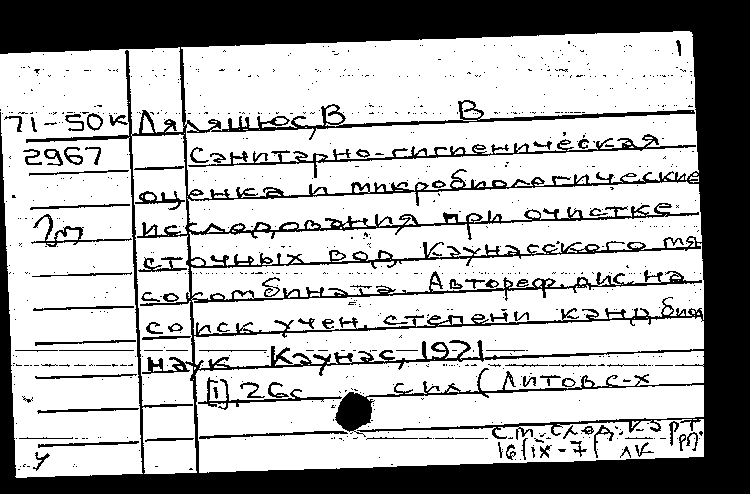 1
71-50к Ляляшюс, В В
2967 Санитарно-гигиеническая
оценка и микробиологические
исследования при очистке
сточных вод Каунасского мя
сокомбината. Автореф. дис. на
соиск. учен. степени канд. биол
наук Каунас, 1971.
[1], 26с с ил (Литов с-х
см. след. карт.
16/IX-71 ЛК